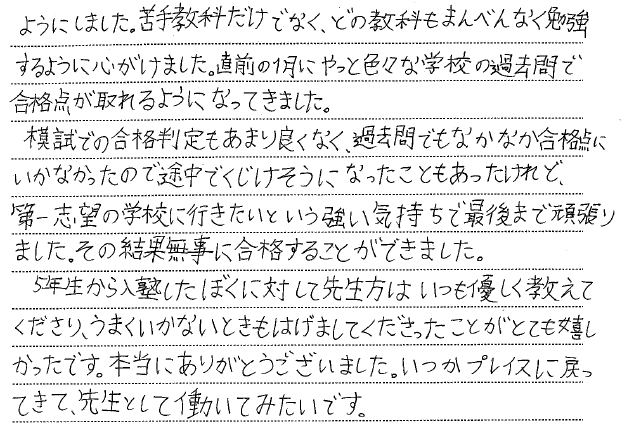 ようにしました。苦手教科だけでなく、どの教科もまんべんなく勉強
するように心がけました。直前の1月にやっと色々な学校の過去問で
合格点が取れるようになってきました。
模試での合格判定もあまり良くなく、過去問でもなかなか合格点に
いかなかったので途中でくじけそうになったこともあったけれど、
第一志望の学校に行きたいという強い気持ちで最後まで頑張り
ました。その結果無事に合格することができました。
5年生から入塾したぼくに対して先生方はいつも優しく教えて
くださり、うまくいかないときもはげましてくださったことがとても嬉し
かったです。本当にありがとうございました。いつかプレイスに戻っ
てきて、先生として働いてみたいです。